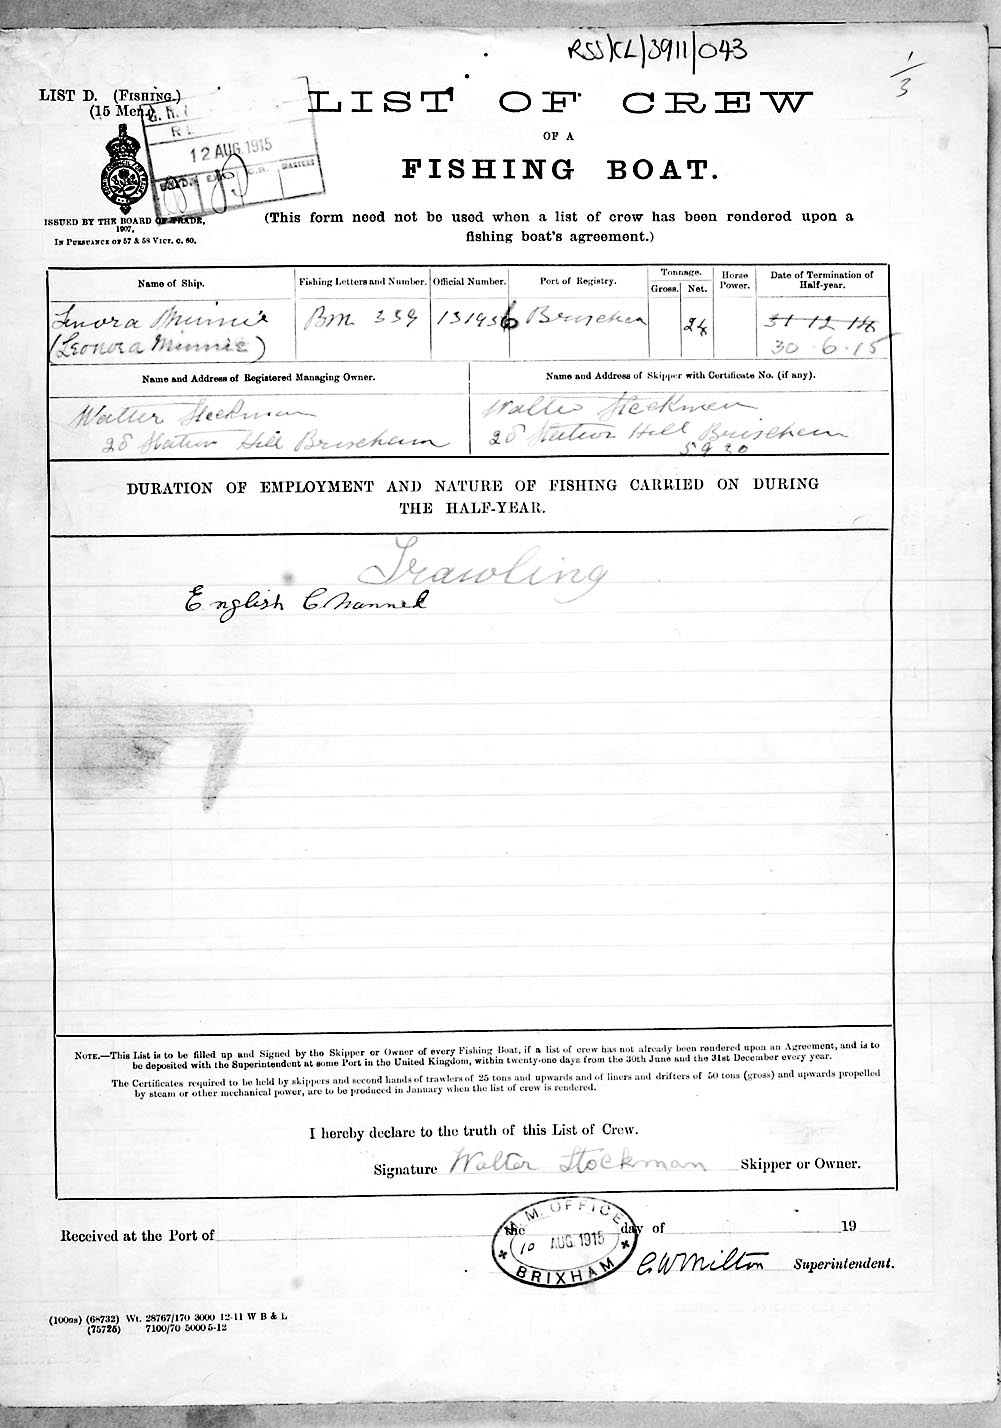 RSS/CL/3911/043
1/3
LIST D. (FISHING.)
(15 Men.)
12 AUG. 1915
MASTERS
LIST OF CREW
OF A
FISHING BOAT.
ISSUED BY THE BOARD OF TRADE,
1907,
IN PURSUANCE OF 57 & 58 VICT. C. 60.
(This form need not be used when a list of crew has been rendered upon a
fishing boat's agreement.)
Name of Ship. Fishing Letters and Number. Official Number. Port of Registry. Tonnage. Gross. Net. Horse Power. Date of Termination of Half-year.
Lenora Minnie BM 339 131936 Brixham 24 31 12 14
(Leonora Minnie) 30 . 6 . 15
Name and Address of Registered Managing Owner. Name and Address of Skipper with Certificate No. (if any).
Walter Stockman Walter Stockman
28 Station Hill Brixham 28 Station Hill Brixham
5920
DURATION OF EMPLOYMENT AND NATURE OF FISHING CARRIED ON DURING
THE HALF-YEAR.
Trawling
English Channel
NOTE.—This List is to be filled up and Signed by the Skipper or Owner of every Fishing Boat, if a list of crew has not already been rendered upon an Agreement, and is to
be deposited with the Superintendent at some Port in the United Kingdom, within twenty-one days from the 30th June and the 31st December every year.
The Certificates required to be held by skippers and second hands of trawlers of 25 tons and upwards and of liners and drifters of 50 tons (gross) and upwards propelled
by steam or other mechanical power, are to be produced in January when the list of crew is rendered.
I hereby declare to the truth of this List of Crew.
Signature Walter Stockman Skipper or Owner.
Received at the Port of the day of 19
M. M. OFFICE
10 AUG. 1915
BRIXHAM
C W Milton Superintendent.
(100as) (68732) Wt. 28767/170 3000 12-11 W B & L
(75725) 7100/70 5000 5-12